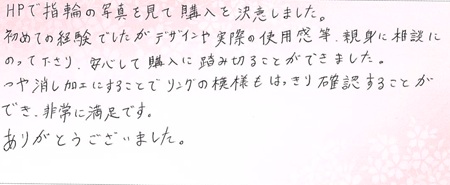 HPで指輪の写真を見て購入を決意しました。
初めての経験でしたがデザインや実際の使用感等、親身に相談に
のって下さり、安心して購入に踏み切ることができました。
つや消し加工にすることでリングの模様もはっきり確認することが
でき、非常に満足です。
ありがとうございました。